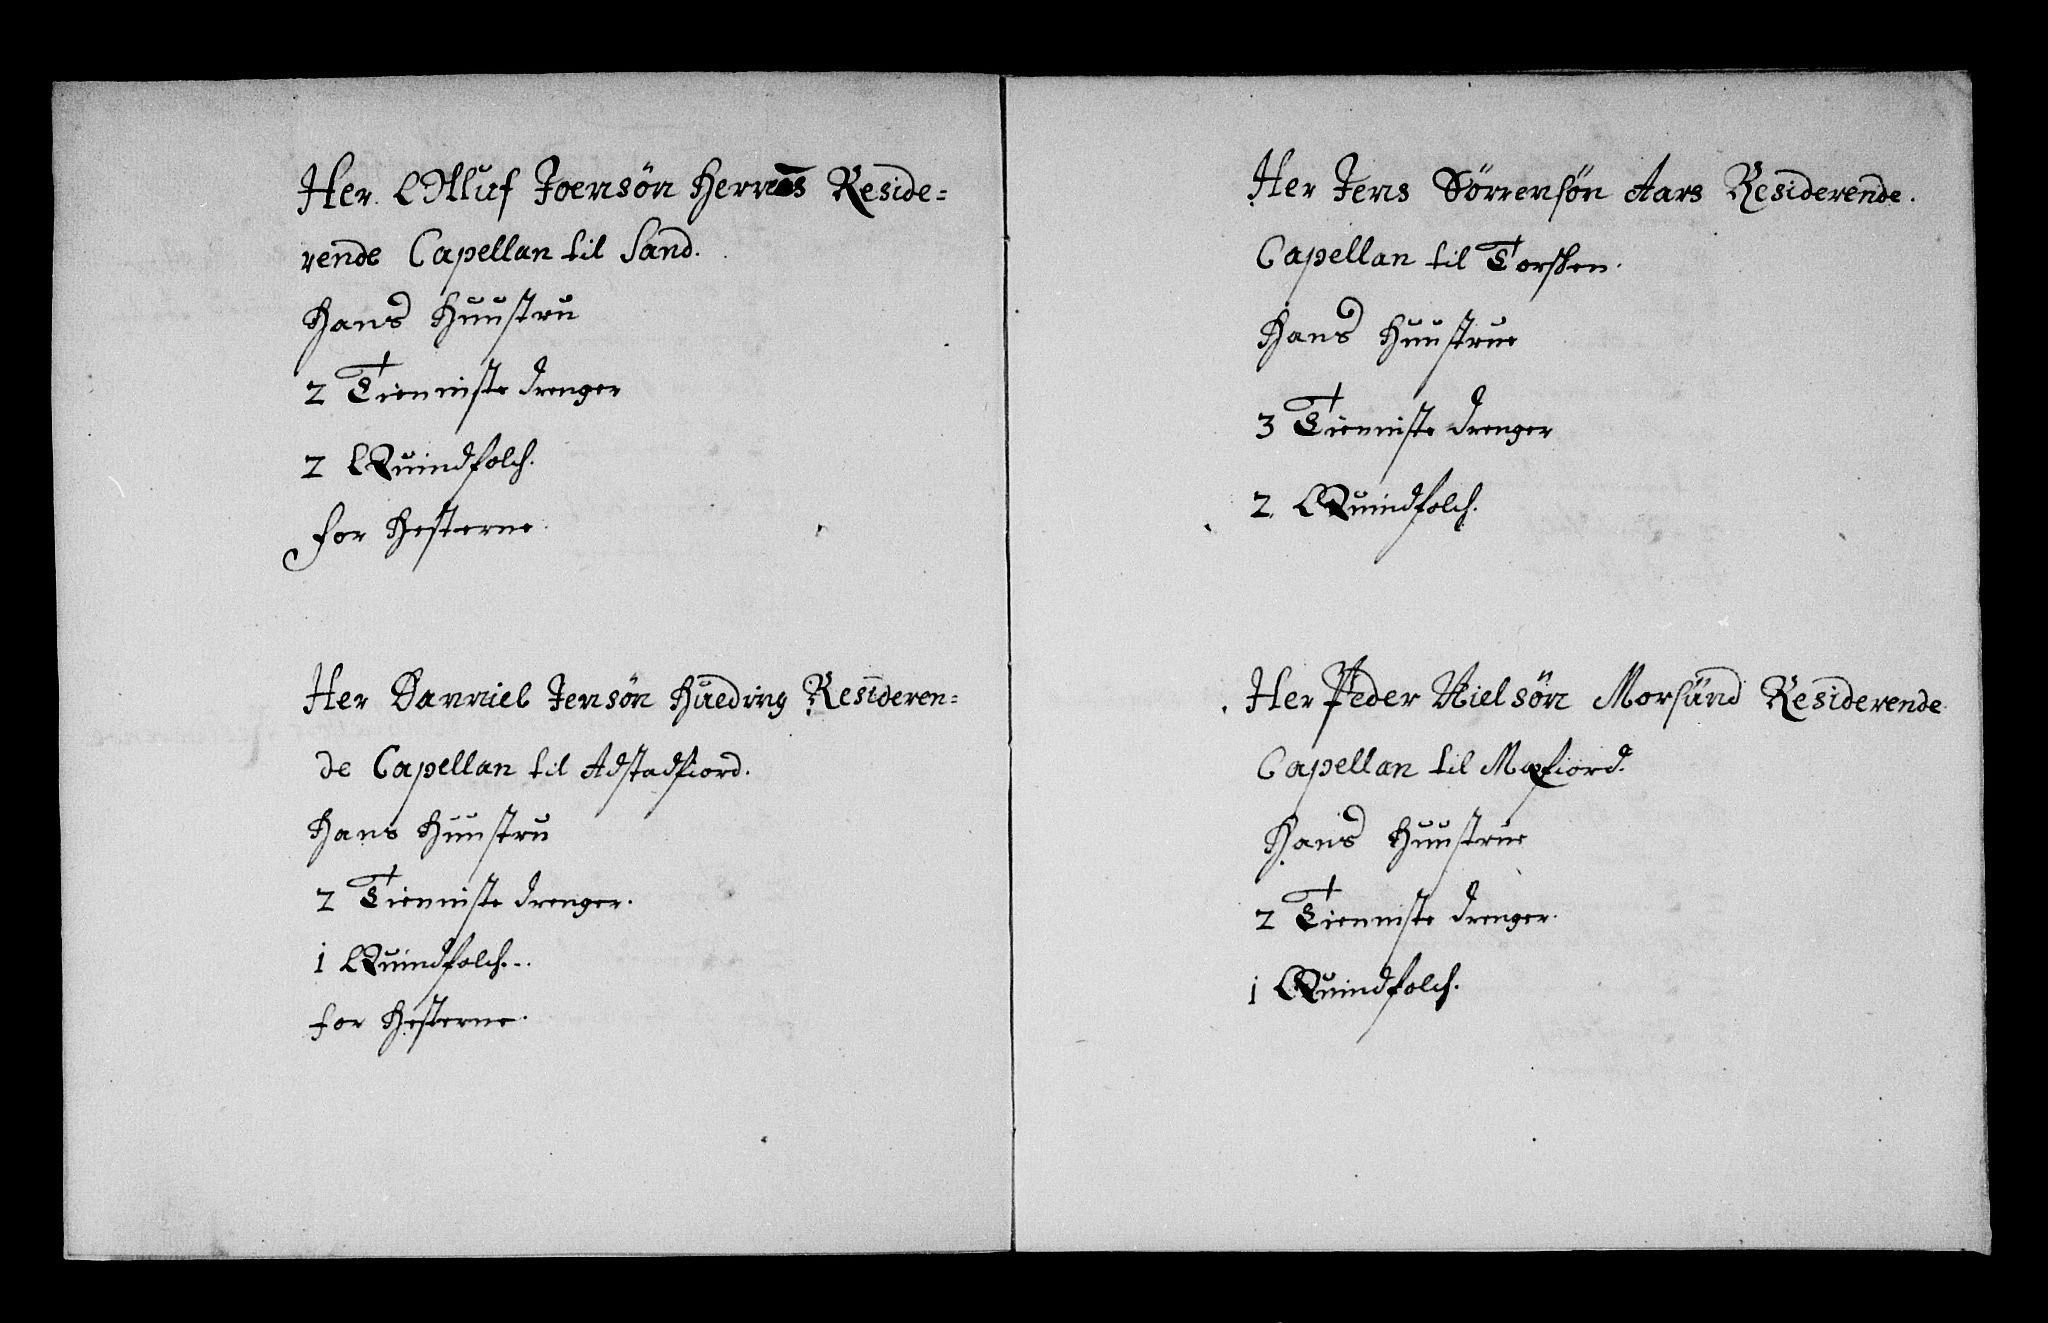 Her. Olluf Joensön Hernös Reside=
rende Capellan til Sand.
Hans Huustru
2 Tienniste drenger
2 Quindfolch.
for Hesterne.
Her Danniel Jensön Hueding Resideren=
de Capellan til Adstadfiord.
Hans Huustru
2 Tienniste drenger.
1 Quindfolch.
for Hesterne.
Her Jens Sörrensön Aars Residerende.
Capellan til Torsken.
Hans Huustrue
3 Tienniste drenger
2. Quindfolch.
Her Peder Nielsön Morsund Residerende
Capellan til Mefiord.
Hans Huustrue
2 Tienniste drenger.
1 Quindfolch.